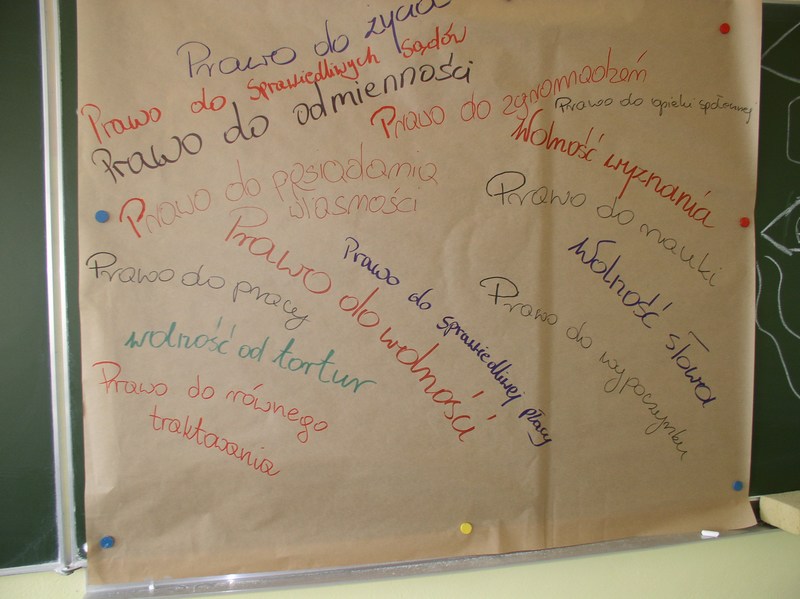 Prawo do życia
Prawo do sprawiedliwych sądów
Prawo do odmienności
Prawo do zgromadzeń
Prawo do opieki społecznej
Wolność wyznania
Prawo do posiadania
własności
Prawo do nauki
Prawo do wolności
Prawo do sprawiedliwej płacy
Wolność słowa
Prawo do pracy
Prawo do wypoczynku
wolność od tortur
Prawo do równego
traktowania